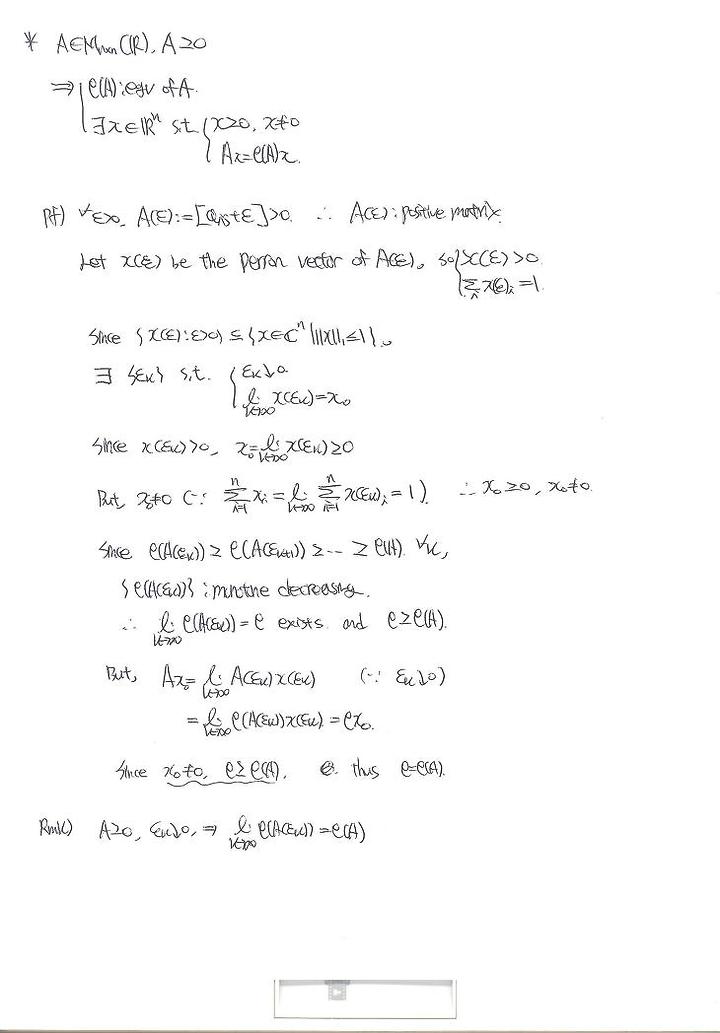 * A∈Mₙₓₙ(ℝ), A≥0
⇒ { ρ(A): egv of A.
∃x∈ℝⁿ s.t. { x≥0, x≠0
Ax=ρ(A)x.
pf) ∀ε>0, A(ε):=[aᵢⱼ+ε]>0. ∴ A(ε): positive matrix.
Let x(ε) be the perron vector of A(ε), so { x(ε)>0.
Σᵢ x(ε)ᵢ=1.
Since {x(ε):ε>0} ⊆ {x∈ℂⁿ | ||x||₁≤1},
∃ {εₖ} s.t. { εₖ↓0.
lim_{k→∞} x(εₖ)=x₀
Since x(εₖ)>0, x₀=lim_{k→∞} x(εₖ)≥0
But, x₀≠0 (∵ Σ_{i=1}^{n} xᵢ = lim_{k→∞} Σ_{i=1}^{n} x(εₖ)ᵢ = 1). ∴ x₀≥0, x₀≠0.
Since ρ(A(εₖ)) ≥ ρ(A(εₖ₊₁)) ≥ ... ≥ ρ(A). ∀k,
{ρ(A(εₖ))} : monotone decreasing.
∴ lim_{k→∞} ρ(A(εₖ)) = ρ exists and ρ≥ρ(A).
But, Ax₀ = lim_{k→∞} A(εₖ)x(εₖ) (∵ εₖ↓0)
= lim_{k→∞} ρ(A(εₖ))x(εₖ) = ρx₀.
Since x₀≠0, ρ≥ρ(A), thus ρ=ρ(A).
Rmk) A≥0, εₖ↓0, ⇒ lim_{k→∞} ρ(A(εₖ)) = ρ(A)